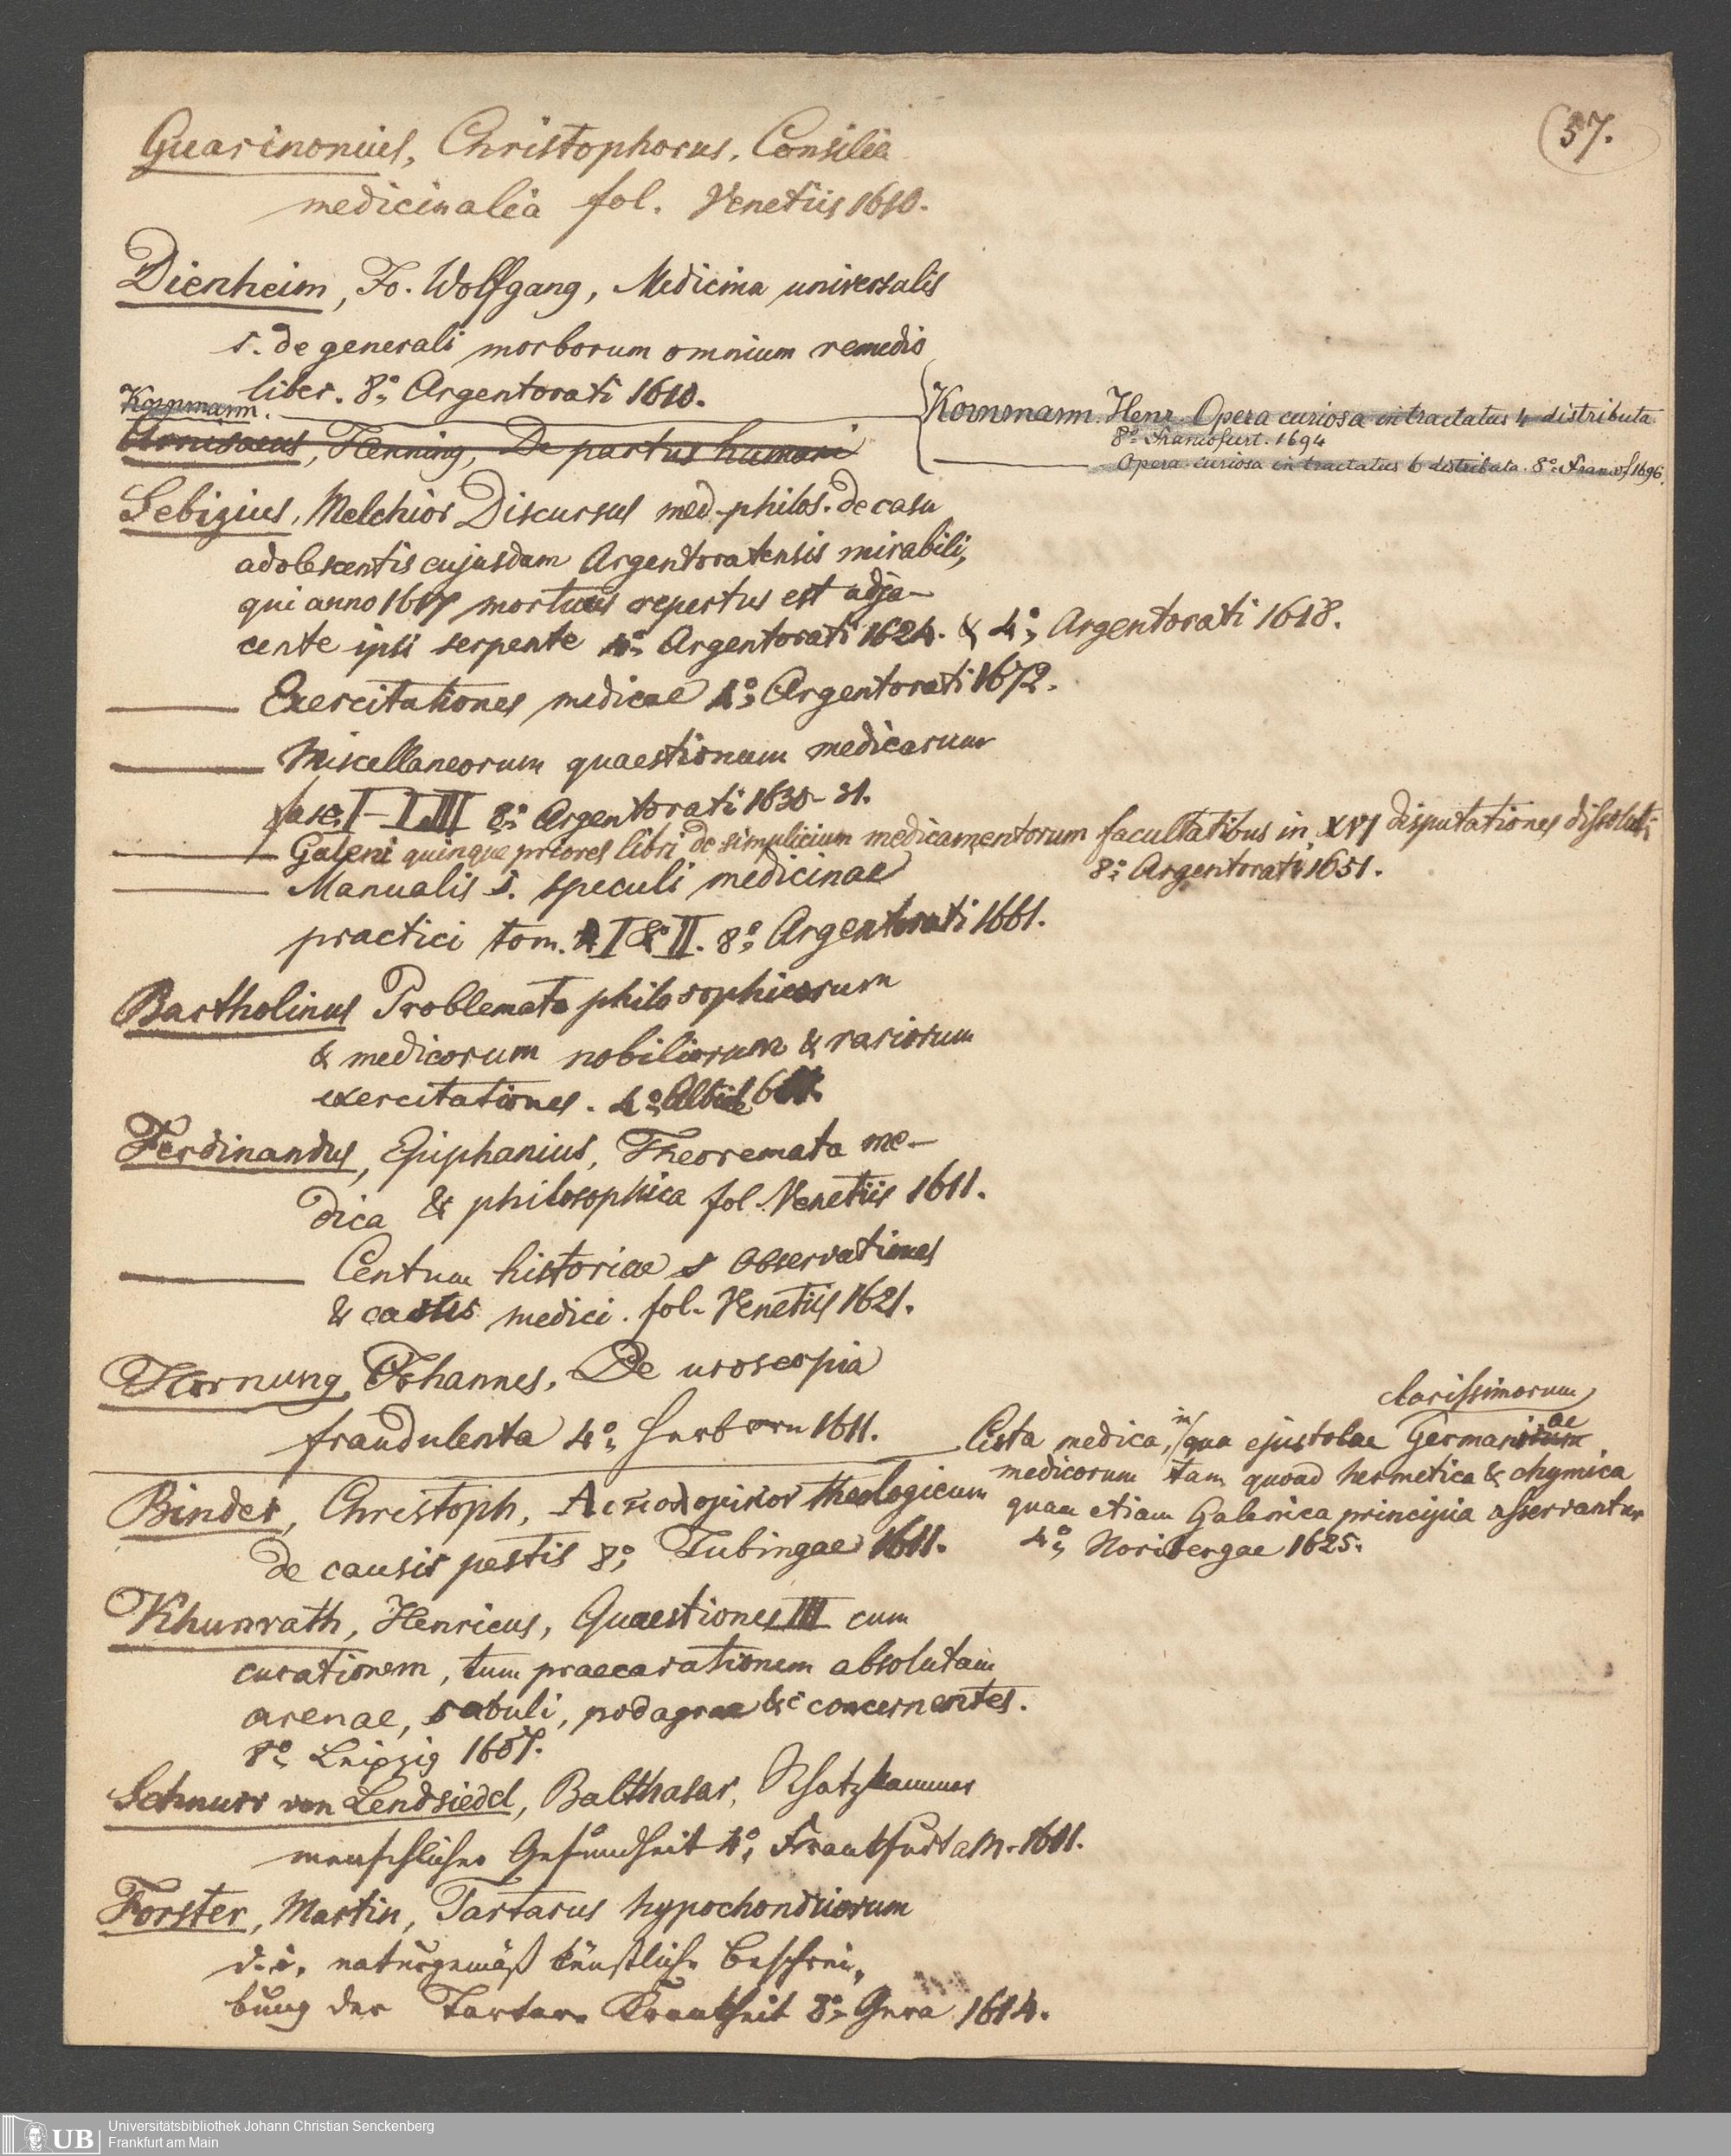 (57.
Guarinonius, Christophorus, Consilia
medicinalia fol. Venetiis 1610.
Dienheim, Jo. Wolfgang, Medicina universalis
s. de generali morborum omnium remedio
liber. 8º, Argentorati 1610.
Kornmann.
Kornmann. Henr. Opera curiosa in tractatus 4 distributa
8º Francofurt. 1694
Opera curiosa in tractatus 6 distributa. 8º Francof 1696.
Arnisaeus, Henning, De partus humani
Sebizius, Melchior Discursus med-philos. de casu
adolescentis cujusdam Argentoratensis mirabili,
qui anno 1617 mortuus repertus est adja-
cente ipsi serpente 4º, Argentorati 1624. & 4º, Argentorati 1618.
Exercitationes medicae 4º, Argentorati 1672.
Miscellaneorum quaestionum medicarum
fasc. I-LIII 8º, Argentorati 1630-31.
Galeni quinque priores libri de simplicium medicamentorum facultatibus in XVI disputationes dissoluti
8º, Argentorati 1651.
Manualis s. speculi medicinae
practici tom. I & II. 8º, Argentorati 1661.
Bartholinus Problemata philosophicorum
& medicorum nobiliorum & rariorum
exercitationes. 4º,
Ferdinandus, Epiphanius, Theoremata me-
dica & philosophica fol. Venetiis 1611.
Centum historiae s observationes
& casus medici. fol. Venetiis 1621.
Hornung, Johannes, De uroscopia
fraudulenta 4º, Herborn 1611.
clarissimorum
Cista medica, in qua epistolae Germaniae
medicorum tam quoad hermetica & chymica
quam etiam Galenica principia asservantur
4º, Noribergae 1625.
Binder, Christoph, theologicum
de causis pestis 8º, Tubingae 1611.
Khunrath, Henricus, Quaestiones III cum
curationem, tum praecavationem absolutam
arenae, sabuli, podagrae &c concernentes.
8º, Leipzig 1607.
Schnurr von Lendsiedel, Balthasar, Schatzkammer
menschlicher Gesundheit 4º, Frankfurt a M. 1611.
Forster, Martin, Tartarus hypochondriorum
d. i. naturgemäß künstliche Beschrei-
bung der Tartar. Krankheit 8º, Gera 1614.
UB
Universitätsbibliothek Johann Christian Senckenberg
Frankfurt am Main